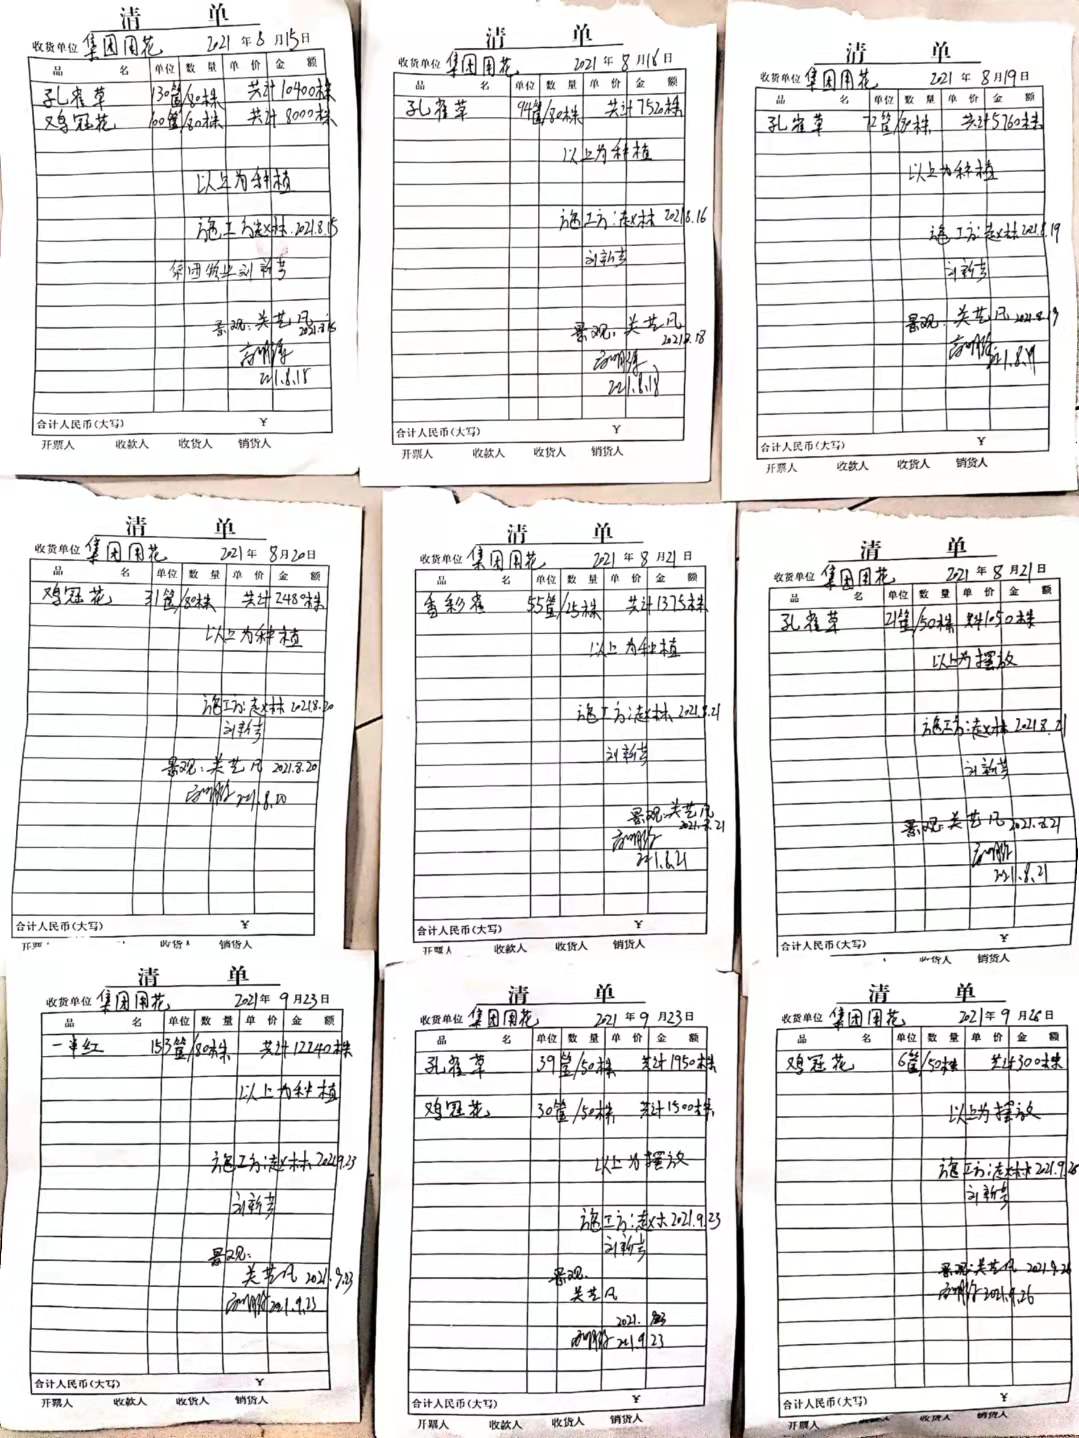 清 单
收货单位 集团用花 2021年8月15日
品 名 单位 数 量 单 价 金 额
孔雀草 130筐/80株 共计10400株
鸡冠花 100筐/80株 共计8000株
以上为种植
施工方赵林.2021.8.15
集团物业刘新芳
景观:关艺凡
2021.8.18
合计人民币(大写) ¥
开票人 收款人 收货人 销货人
清 单
收货单位 集团用花 2021年8月16日
品 名 单位 数 量 单 价 金 额
孔雀草 94筐/80株 共计7520株
以上为种植
施工方:赵林 2021.8.16
刘新芳
景观:关艺凡
2021.8.18
2021.8.18
合计人民币(大写) ¥
开票人 收款人 收货人 销货人
清 单
收货单位 集团用花 2021年8月19日
品 名 单位 数 量 单 价 金 额
孔雀草 72筐/80株 共计5760株
以上为种植
施工方:赵林2021.8.19
刘新芳
景观:关艺凡 2021.8.19
2021.8.19
合计人民币(大写) ¥
开票人 收款人 收货人 销货人
清 单
收货单位 集团用花 2021年8月20日
品 名 单位 数 量 单 价 金 额
鸡冠花 31筐/80株 共计2480株
以上为种植
施工方:赵林2021.8.20
刘新芳
景观:关艺凡 2021.8.20
2021.8.20
合计人民币(大写) ¥
开票人 收货人 销货人
清 单
收货单位 集团用花 2021年8月21日
品 名 单位 数 量 单 价 金 额
香彩雀 55筐/25株 共计1375株
以上为种植
施工方:赵林2021.8.21
刘新芳
景观:关艺凡
2021.8.21
2021.8.21
合计人民币(大写) ¥
开票人 收款人 收货人 销货人
清 单
收货单位 集团用花 2021年8月21日
品 名 单位 数 量 单 价 金 额
孔雀草 21筐/50株 共计1050株
以上为摆放
施工方:赵林2021.8.21
刘新芳
景观:关艺凡2021.8.21
2021.8.21
合计人民币(大写) ¥
收货人 销货人
清 单
收货单位 集团用花 2021年9月23日
品 名 单位 数 量 单 价 金 额
一串红 153筐/80株 共计12240株
以上为种植
施工方:赵林2021.9.23
刘新芳
景观:
关艺凡 2021.9.23
2021.9.23
合计人民币(大写) ¥
开票人 收款人 收货人 销货人
清 单
收货单位 集团用花 2021年9月23日
品 名 单位 数 量 单 价 金 额
孔雀草 39筐/50株 共计1950株
鸡冠花 30筐/50株 共计1500株
以上为摆放
施工方:赵林2021.9.23
刘新芳
景观:
关艺凡
2021.9.23
合计人民币(大写) ¥
开票人 收款人 收货人 销货人
清 单
收货单位 集团用花 2021年9月26日
品 名 单位 数 量 单 价 金 额
鸡冠花 6筐/50株 共计300株
以上为摆放
施工方:赵林2021.9.26
刘新芳
景观:关艺凡 2021.9.26
2021.9.26
合计人民币(大写) ¥
开票人 收款人 收货人 销货人